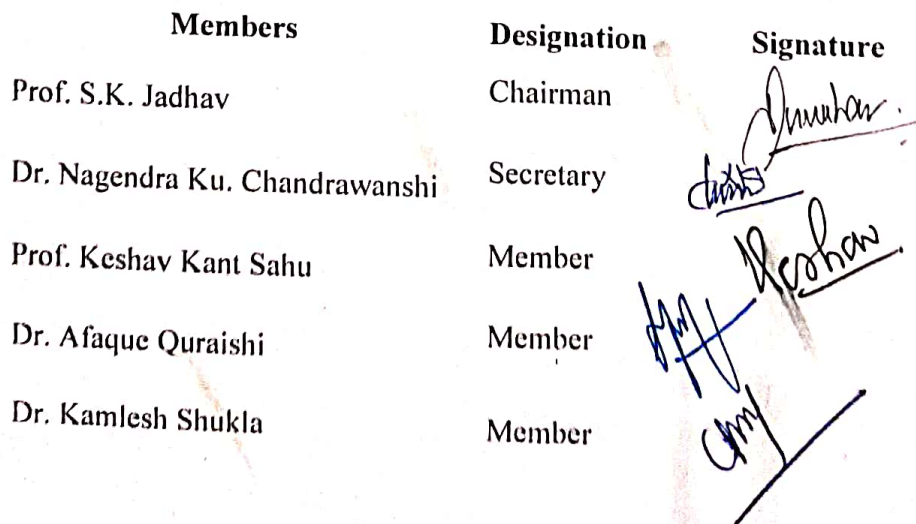 Members Designation Signature
Prof. S.K. Jadhav Chairman
Dr. Nagendra Ku. Chandrawanshi Secretary
Prof. Keshav Kant Sahu Member Keshav
Dr. Afaque Quraishi Member
Dr. Kamlesh Shukla Member